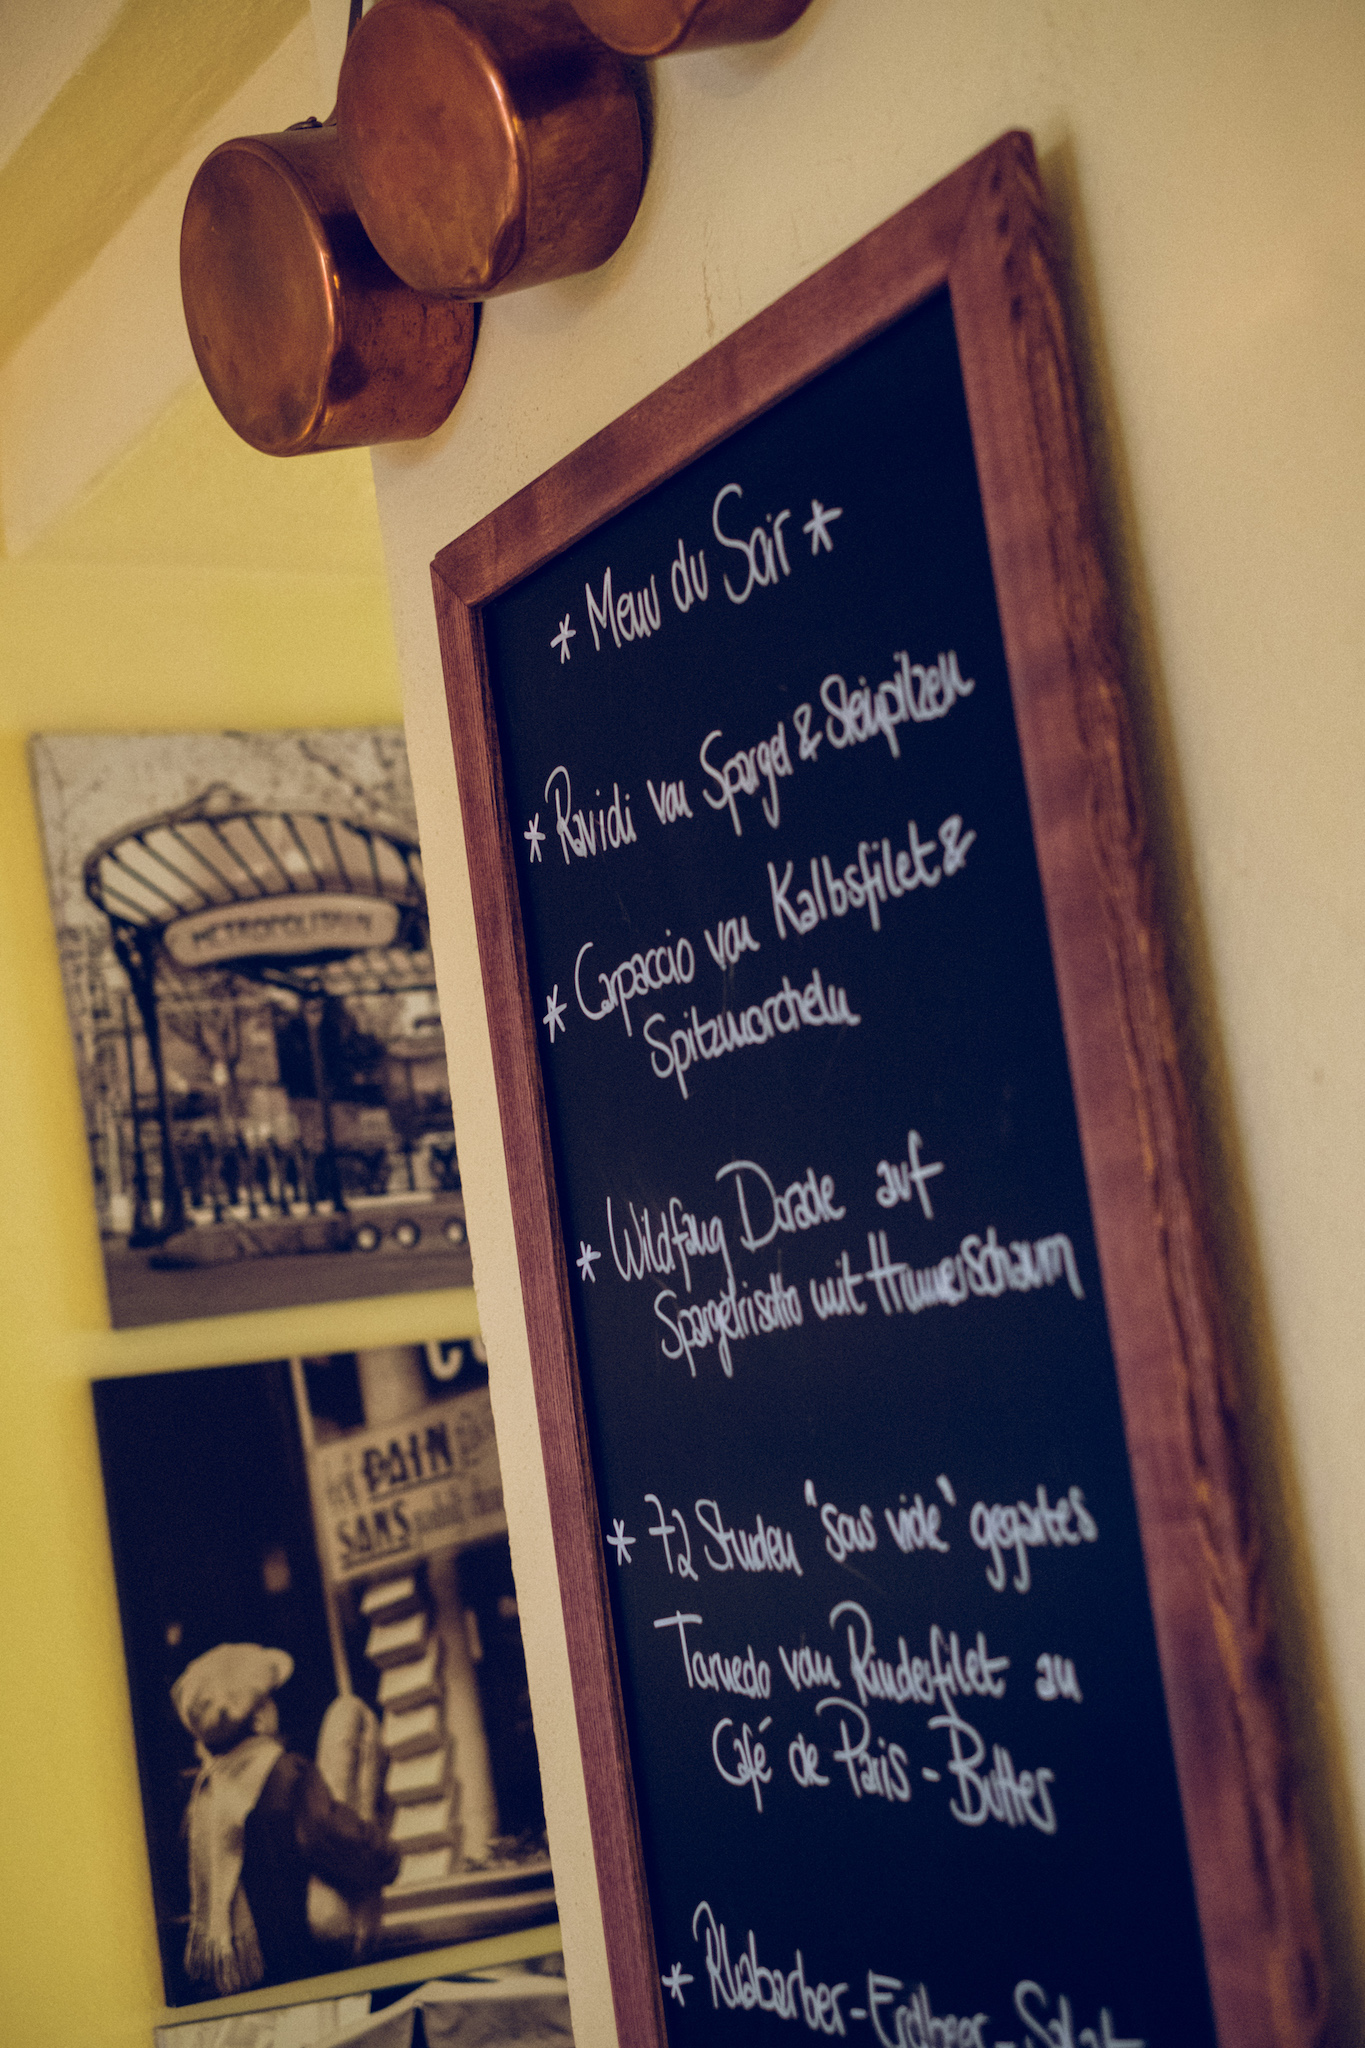 * Menu du Soir *
* Ravioli von Spargel & Steinpilzen
* Carpaccio von Kalbsfilet &
Spitzmorcheln
* Wildfang Dorade auf
Spargelrisotto mit Hummerschaum
* 72 Stunden "sous vide" gegartes
Tornedo vom Rinderfilet an
Café de Paris - Butter
* Rhabarber-Erdbeer-Salat
METROPOLITAIN
ici PAIN
SANS